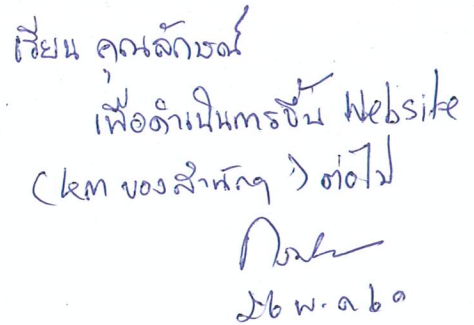 เรียน คุณลักษณ์
เพื่อดำเนินการขึ้น Website
(km ของสำนักฯ) ต่อไป
๒๖ พ.ค ๖๑